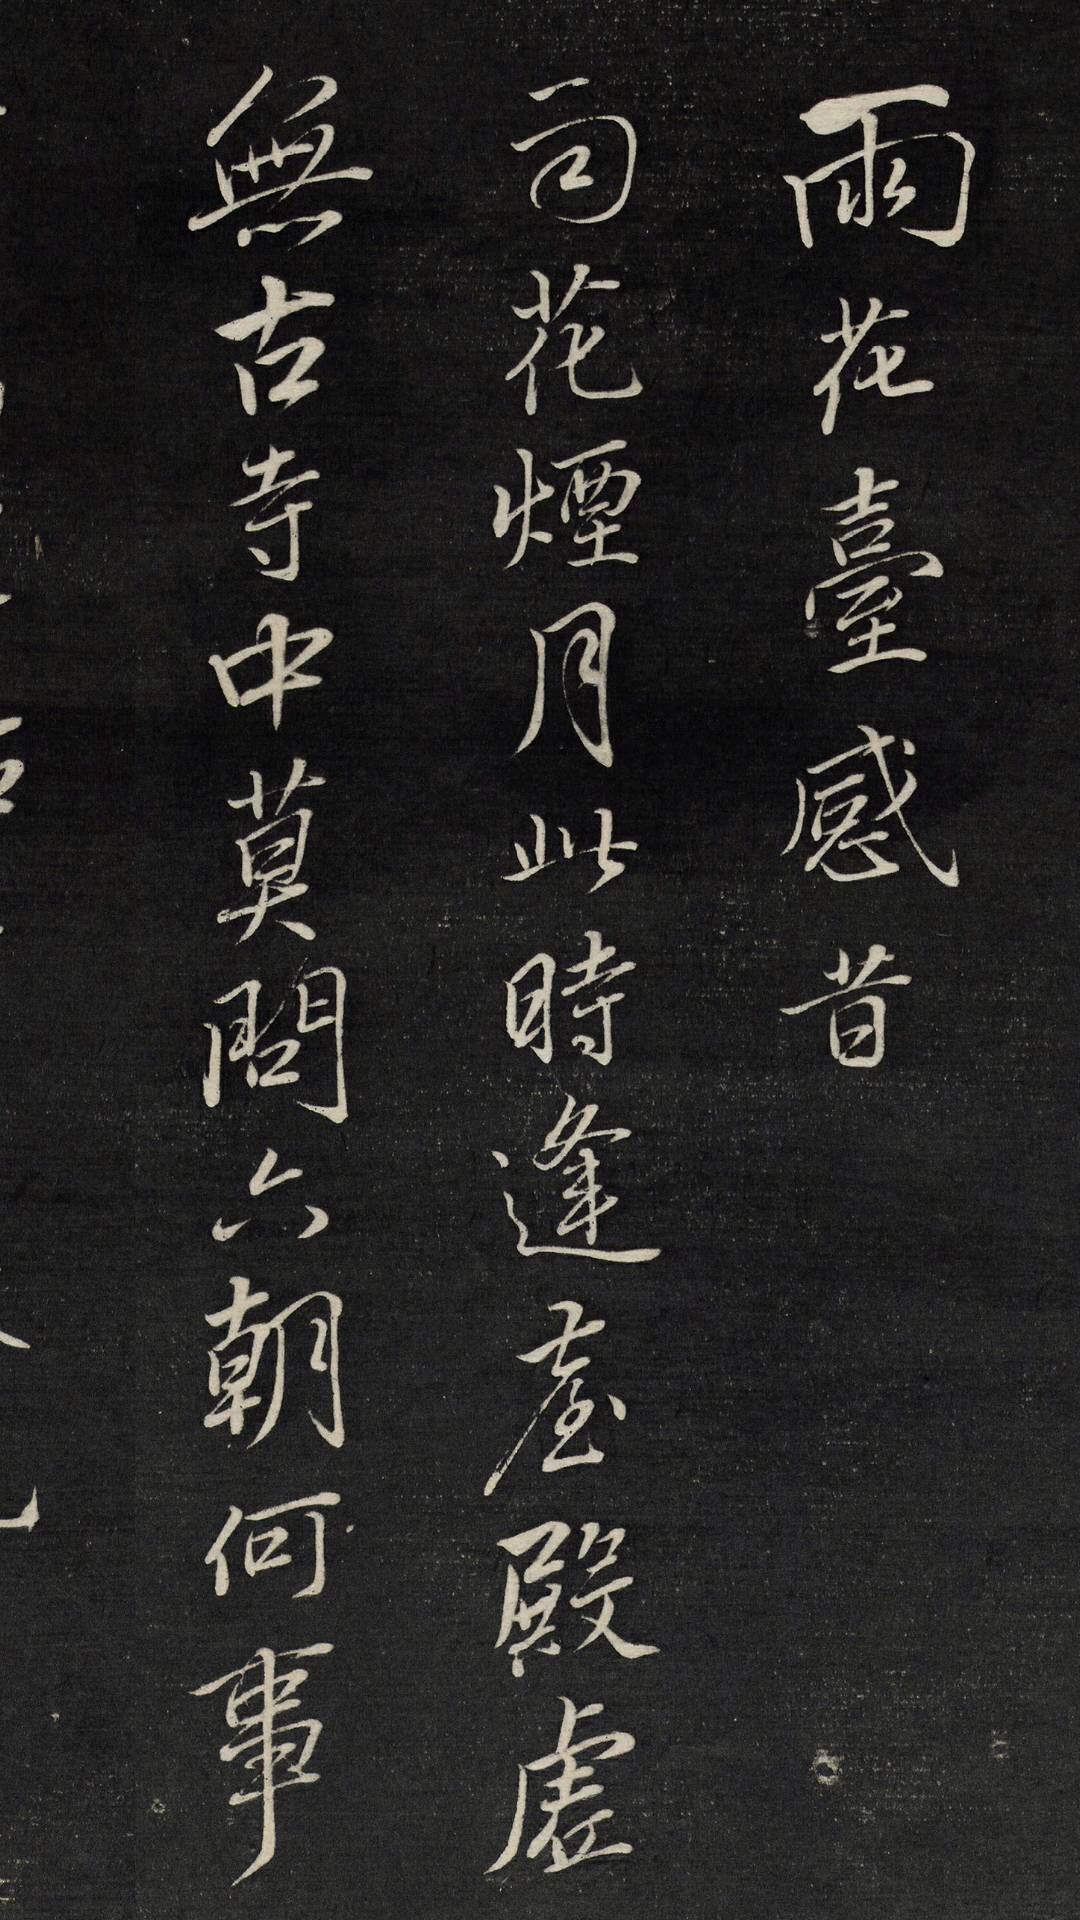 雨花臺感昔
司花煙月此時逢臺殿虛
無古寺中莫問六朝何事